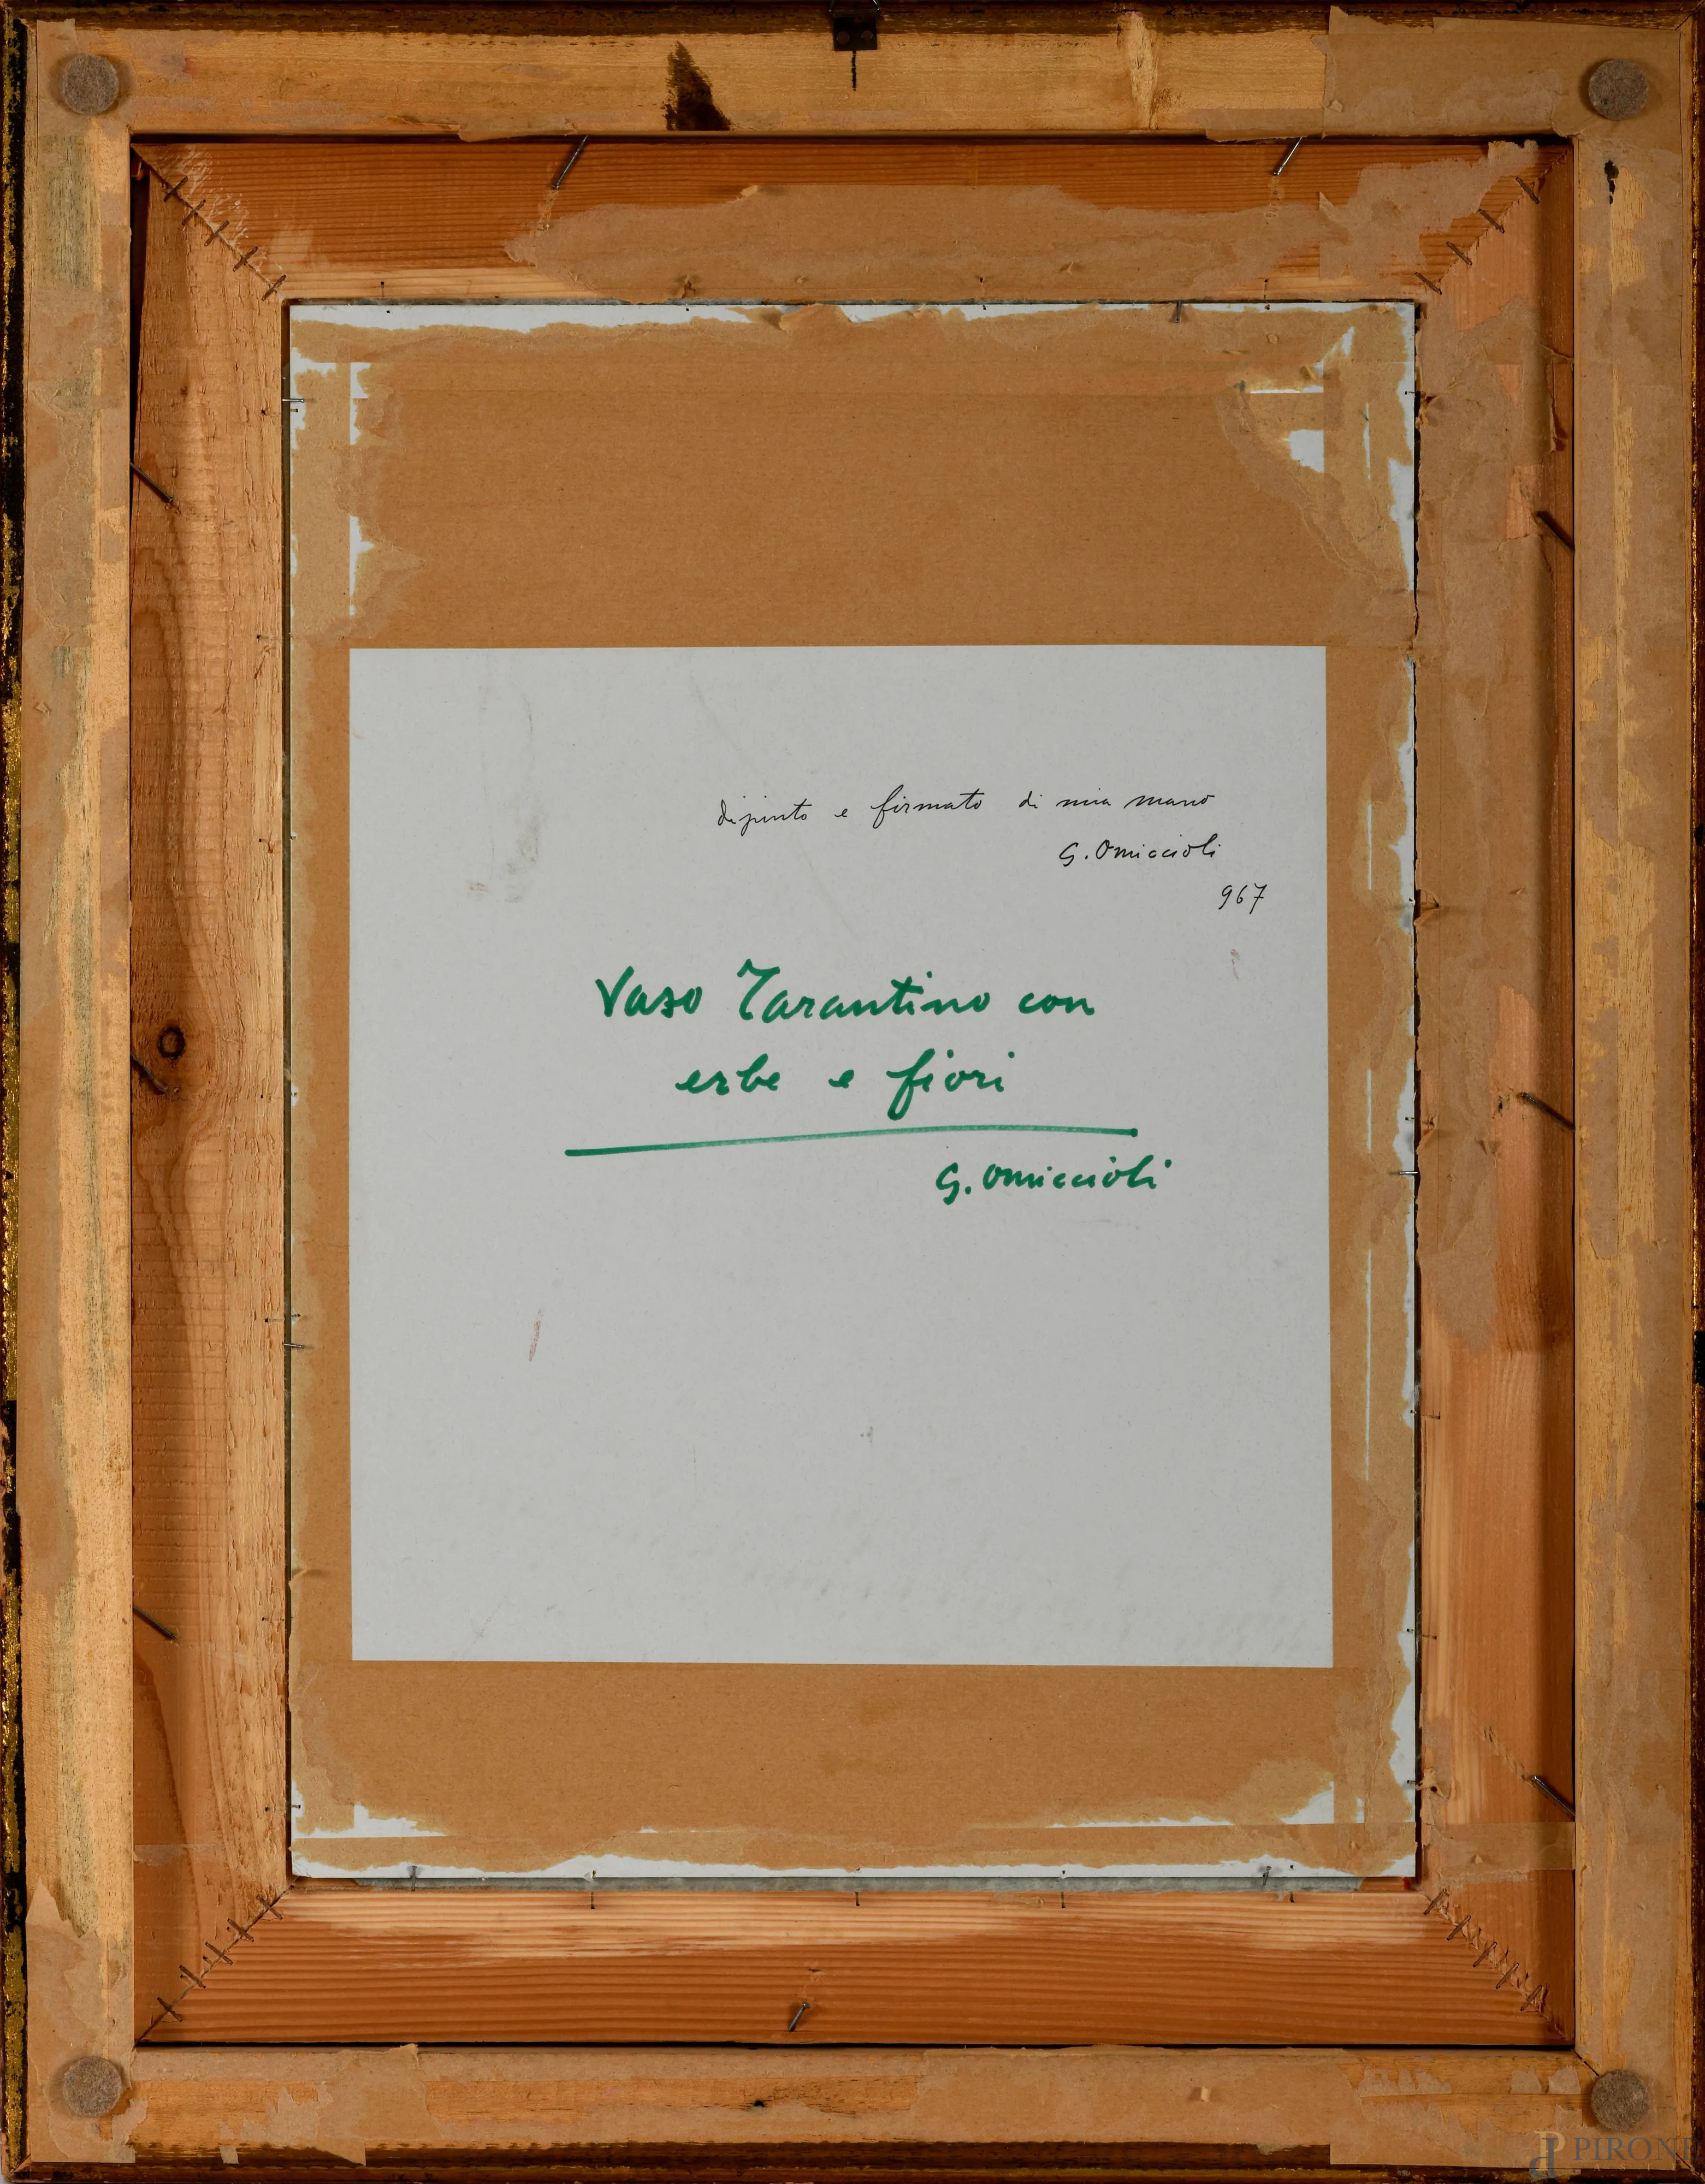 dipinto e firmato di mia mano
G. Omiccioli
967
Vaso Tarantino con
erbe e fiori
G. Omiccioli
PIRONE